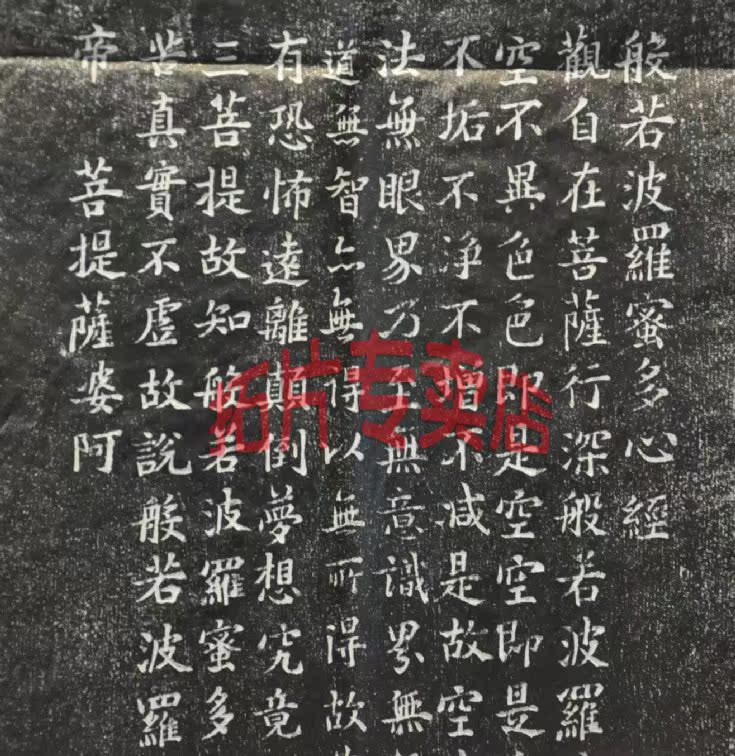 般若波羅蜜多心經
觀自在菩薩行深般若波羅
空不異色色即是空空即是
不垢不淨不增不减是故空
法無眼界乃至無意識界無
道無智亦無得以無所得故
有恐怖遠離顛倒夢想究竟
三菩提故知般若波羅蜜多
苦真實不虛故說般若波羅
帝 菩提薩婆阿
拓片专卖店